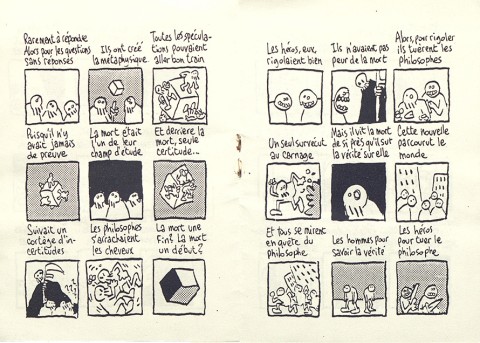 Rarement à répondre
Alors pour les questions
sans réponses
Ils ont créé
la métaphysique
Toutes les spécula-
tions pouvaient
aller bon train
Puisqu'il n'y
avait jamais
de preuve
La mort était
l'un de leur
champ d'étude
Et derrière la
mort, seule
certitude...
Suivait un
cortège d'in-
certitudes
Les philosophes
s'arrachaient
les cheveux
La mort une
fin? La mort
un début?
Les héros, eux,
rigolaient bien
Ils n'avaient pas
peur de la mort
Alors, pour rigoler
ils tuèrent les
philosophes
Un seul survécut
au carnage
Mais il vit la mort
de si près qu'il sut
la vérité sur elle
Cette nouvelle
parcourut le
monde
Et tous se mirent
en quête du
philosophe
Les hommes pour
savoir la vérité
Les héros
pour tuer le
philosophe